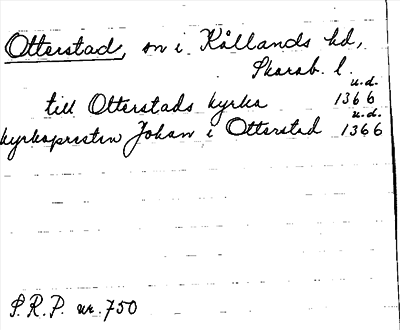 Otterstad, sn i Kållands hd,
Skarab. l.
till Otterstads kyrka 1366 u.d.
kyrkapresten Johan i Otterstad 1366 u.d.
S.R.P. nr. 750